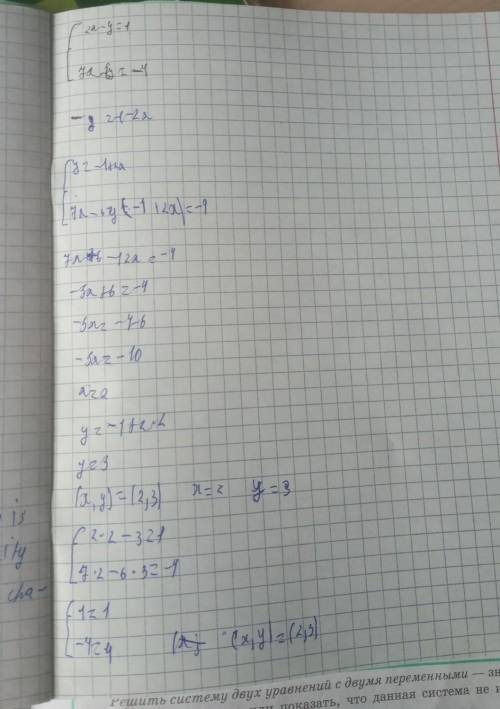 2x-y=1
7x-6y=-4
-y=1-2x
y=-1+2x
7x-6(-1+2x)=-4
7x+6-12x=-4
-5x+6=-4
-5x=-4-6
-5x=-10
x=2
y=-1+2·2
y=3
(x,y)=(2,3) x=2 y=3
2·2-3=1
7·2-6·3=-4
1=1
-4=4 (x,y)=(2,3)
is
ity
cha-
Решить систему двух уравнений с двумя переменными — зн
или показать, что данная система не и